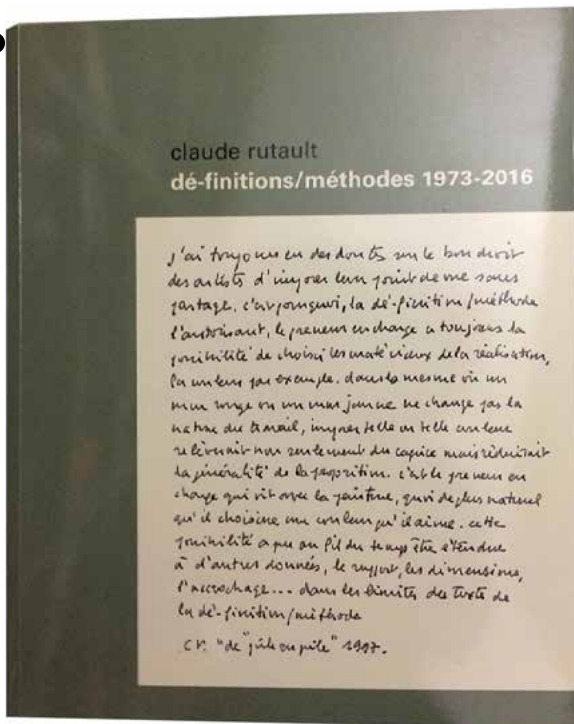 claude rutault
dé-finitions/méthodes 1973-2016
j'ai toujours eu des doutes sur le bon droit
des artistes d'imposer leur point de vue sans
partage. c'est pourquoi, la dé-finition/méthode
l'autorisant, le preneur en charge a toujours la
possibilité de choisir les matériaux de la réalisation,
la couleur par exemple. dans la mesure où un
mur rouge ou un mur jaune ne change pas la
nature du travail, imposer telle ou telle couleur
relèverait non seulement du caprice mais réduirait
la généralité de la proposition. c'est le preneur en
charge qui vit avec la peinture, quoi de plus naturel
qu'il choisisse une couleur qu'il aime. cette
possibilité a pu au fil du temps être étendue
à d'autres données, le support, les dimensions,
l'accrochage... dans les limites des textes de
la dé-finition/méthode
c.r. "de pile en pile" 1997.